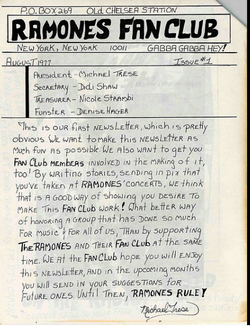 P.O. BOX 269 OLD CHELSEA STATION
RAMONES FAN CLUB
NEW YORK, NEW YORK 10011 GABBA GABBA HEY!
AUGUST 1977 ISSUE #1
PRESIDENT - MICHAEL TRESE
SECRETARY - DIDI SHAW
TREASURER - NICOLE STRAMBI
FUNSTER - DENISE HAGER
THIS IS OUR FIRST NEWSLETTER, WHICH IS PRETTY
OBVIOUS. WE WANT TO MAKE THIS NEWSLETTER AS
MUCH FUN AS POSSIBLE. WE ALSO WANT TO GET YOU
FAN CLUB MEMBERS INVOLVED IN THE MAKING OF IT,
TOO! BY WRITING STORIES, SENDING IN PIX THAT
YOU'VE TAKEN AT RAMONES' CONCERTS, WE THINK
THAT IS A GOOD WAY OF SHOWING YOU DESIRE TO
MAKE THIS FAN CLUB WORK! WHAT BETTER WAY
OF HONORING A GROUP THAT HAS DONE SO MUCH
FOR MUSIC & FOR ALL OF US, THAN BY SUPPORTING
THE RAMONES AND THEIR FAN CLUB AT THE SAME
TIME. WE AT THE FAN CLUB HOPE YOU WILL ENJOY
THIS NEWSLETTER, AND IN THE UPCOMING MONTHS
YOU WILL SEND IN YOUR SUGGESTIONS FOR
FUTURE ONES. UNTIL THEN, RAMONES RULE!
Michael Trese